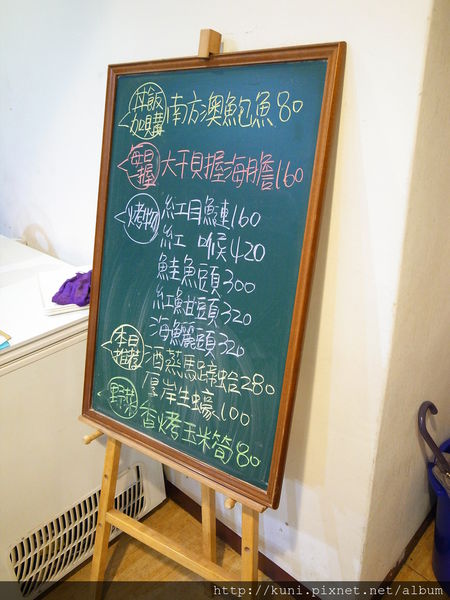 丼飯
加購
南方澳鮑魚80
每日
握
大干貝握海膽160
烤物
紅目鰱160
紅喉420
鮭魚頭300
紅魽頭320
海鱺頭320
本日
推薦
酒蒸馬蹄蛤280
厚岸生蠔100
野菜
香烤玉米筍80
http://kuni.pixnet.net/album